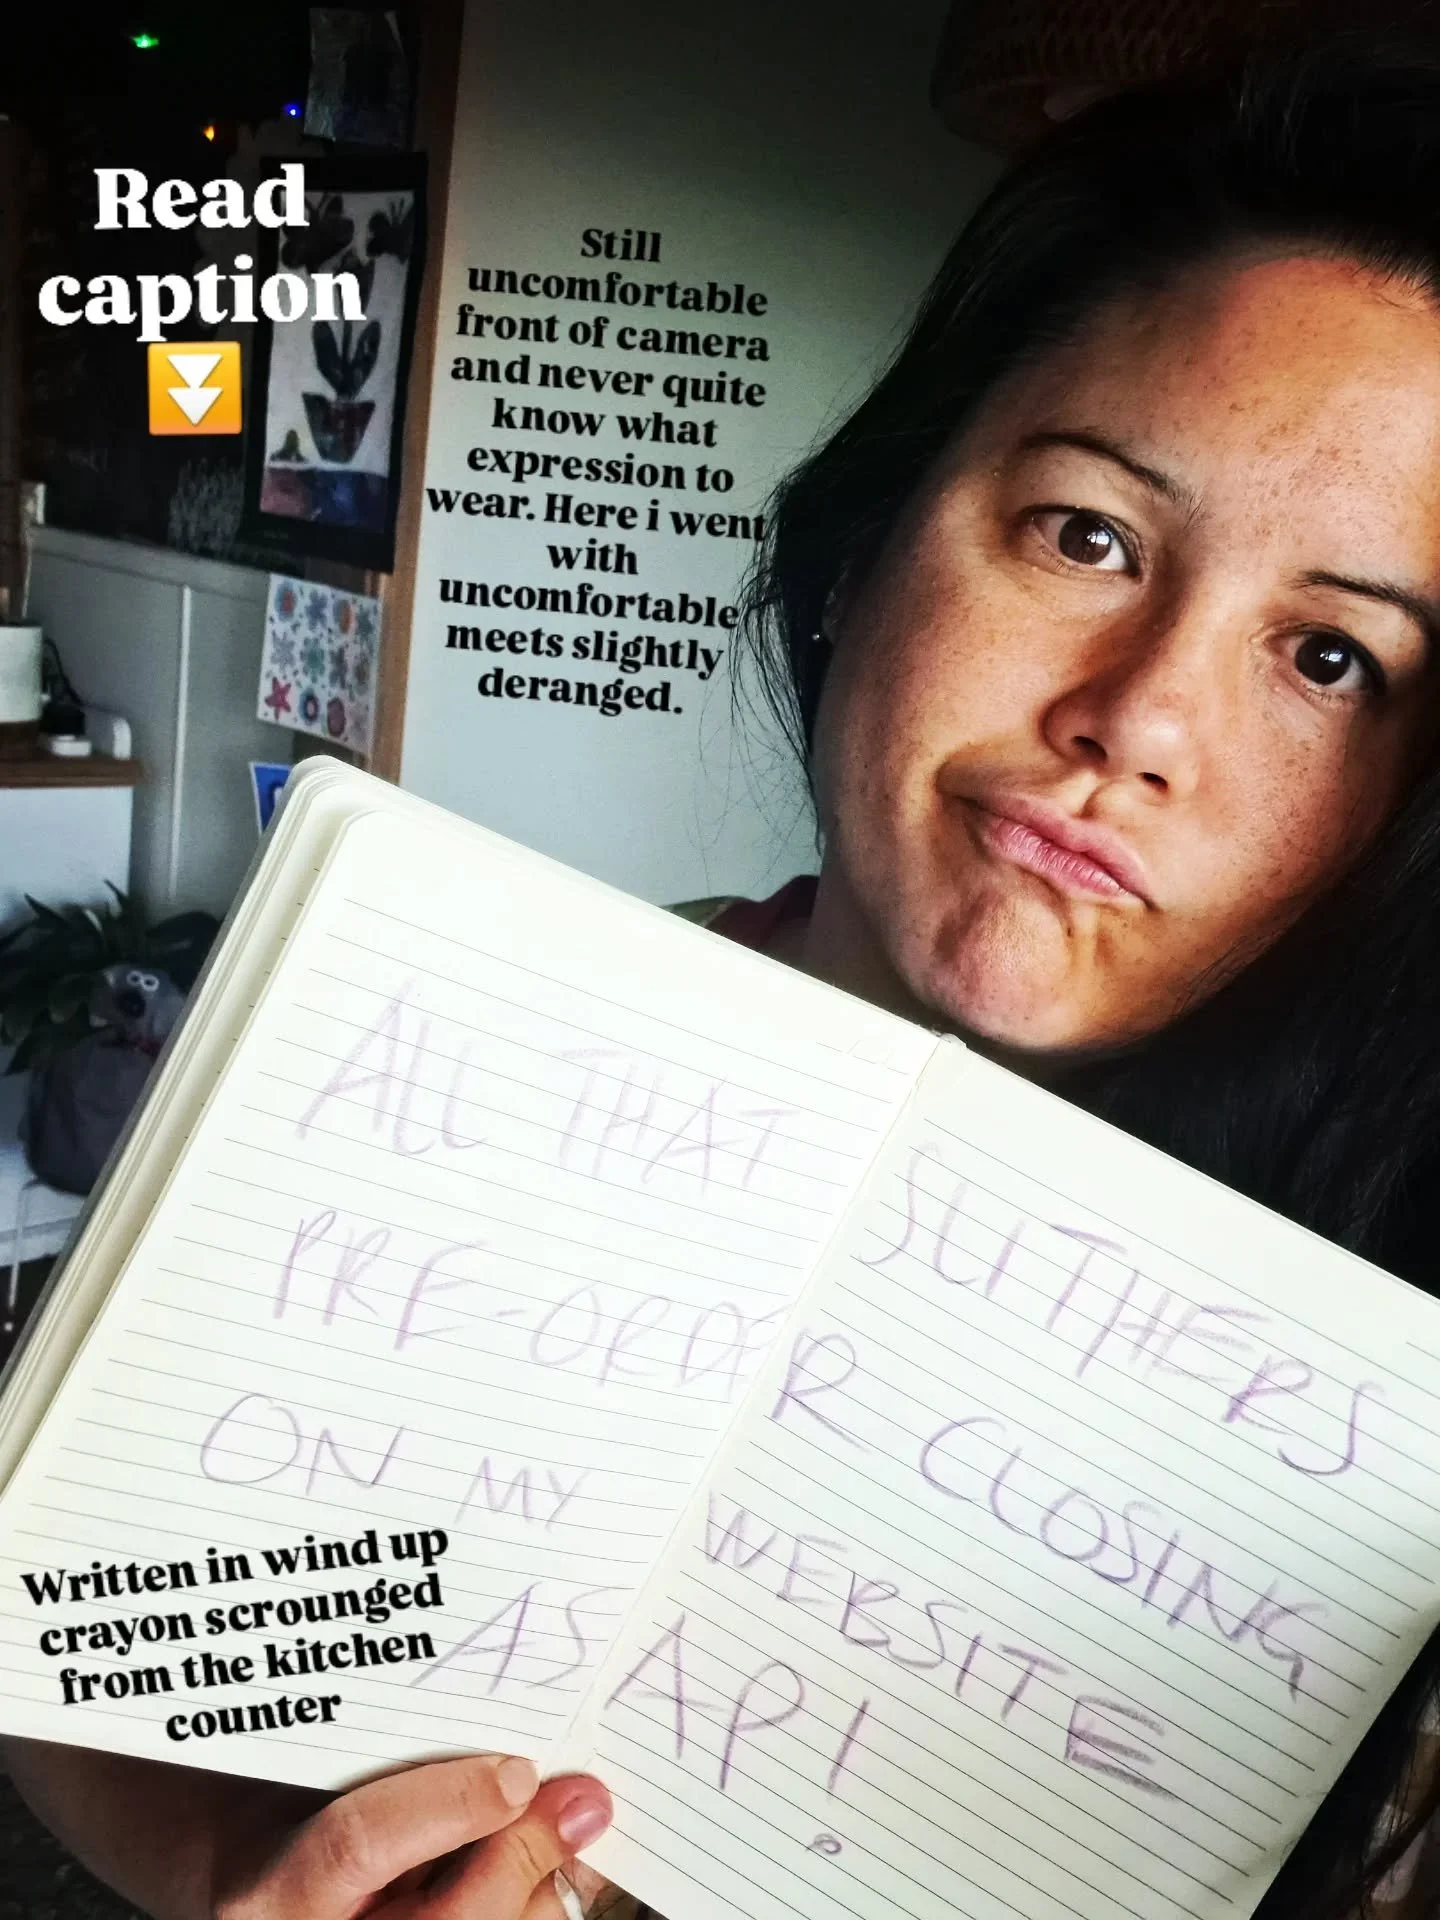 Read
caption
Still
uncomfortable
front of camera
and never quite
know what
expression to
wear. Here i went
with
uncomfortable
meets slightly
deranged.
ALL THAT SLITHERS
PRE-ORDER CLOSING
ON MY WEBSITE
ASAP!
Written in wind up
crayon scrounged
from the kitchen
counter